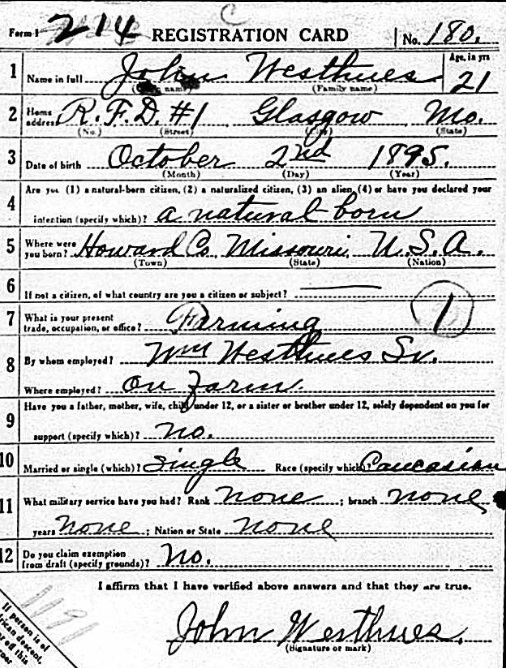 C
Form 1 214 REGISTRATION CARD No. 180.
1 Name in full John Westhues Age, in yrs 21
(Family name)
2 Home address R.F.D. #1 Glasgow Mo.
(No.) (Street) (City) (State)
3 Date of birth October 2nd 1895.
(Month) (Day) (Year)
4 Are you (1) a natural-born citizen, (2) a naturalized citizen, (3) an alien, (4) or have you declared your
intention (specify which)? a natural born
5 Where were you born? Howard Co. Missouri U.S.A.
(Town) (State) (Nation)
6 If not a citizen, of what country are you a citizen or subject?
7 What is your present trade, occupation, or office? Farming 1
8 By whom employed? Wm Westhues Sr.
Where employed? on Farm
9 Have you a father, mother, wife, child under 12, or a sister or brother under 12, solely dependent on you for
support (specify which)? no.
10 Married or single (which)? Single Race (specify which)? Caucasian
11 What military service have you had? Rank none ; branch none
years none ; Nation or State none
12 Do you claim exemption from draft (specify grounds)? No.
I affirm that I have verified above answers and that they are true.
John Westhues.
(Signature or mark)
If person is of
rican descent,
off this